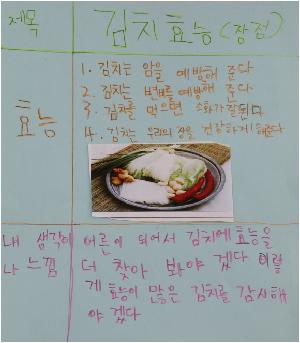 제목 김치효능(장점)
효능
1. 김치는 암을 예방해 준다
2. 김치는 변비를 예방해 준다
3. 김치를 먹으면 소화가 잘된다
4. 김치는 우리의 장을 건강하게 해준다
내 생각이나 느낌
어른이 되어서 김치에 효능을
더 찾아 봐야 겠다 이렇
게 효능이 많은 김치를 감사해
야 겠다